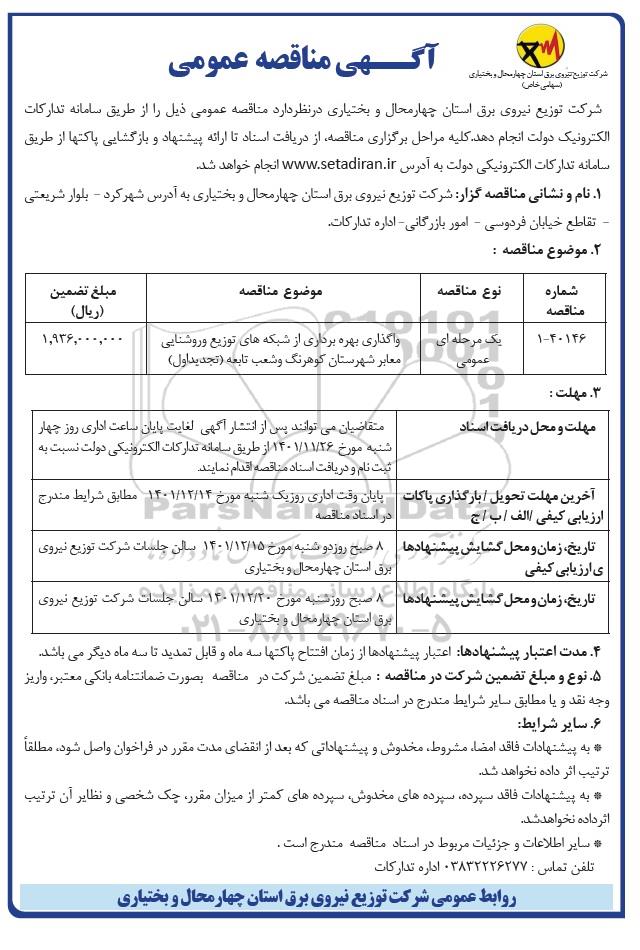 شرکت توزیع نیروی برق استان چهارمحال و بختیاری
(سهامی خاص)
آگهی مناقصه عمومی
شرکت توزیع نیروی برق استان چهارمحال و بختیاری درنظردارد مناقصه عمومی ذیل را از طریق سامانه تدارکات
الکترونیک دولت انجام دهد.کلیه مراحل برگزاری مناقصه، از دریافت اسناد تا ارائه پیشنهاد و بازگشایی پاکتها از طریق
سامانه تدارکات الکترونیکی دولت به آدرس www.setadiran.ir انجام خواهد شد.
۱. نام و نشانی مناقصه گزار: شرکت توزیع نیروی برق استان چهارمحال و بختیاری به آدرس شهرکرد – بلوار شریعتی
– تقاطع خیابان فردوسی – امور بازرگانی- اداره تدارکات.
۲. موضوع مناقصه :
شماره مناقصه
نوع مناقصه
موضوع مناقصه
مبلغ تضمین (ریال)
۱-۴۰۱۴۶
یک مرحله ای
عمومی
واگذاری بهره برداری از شبکه های توزیع وروشنایی
معابر شهرستان کوهرنگ وشعب تابعه (تجدیداول)
۱,۹۳۶,۰۰۰,۰۰۰
۳. مهلت :
مهلت و محل دریافت اسناد
متقاضیان می توانند پس از انتشار آگهی لغایت پایان ساعت اداری روز چهار
شنبه مورخ ۱۴۰۱/۱۱/۲۶ از طریق سامانه تدارکات الکترونیکی دولت نسبت به
ثبت نام و دریافت اسناد مناقصه اقدام نمایند.
آخرین مهلت تحویل / بارگذاری پاکات
ارزیابی کیفی /الف / ب / ج
پایان وقت اداری روزیک شنبه مورخ ۱۴۰۱/۱۲/۱۴ مطابق شرایط مندرج
در اسناد مناقصه
تاریخ، زمان و محل گشایش پیشنهادها
ی ارزیابی کیفی
۸ صبح روزدو شنبه مورخ ۱۴۰۱/۱۲/۱۵ سالن جلسات شرکت توزیع نیروی
برق استان چهارمحال و بختیاری
تاریخ، زمان و محل گشایش پیشنهادها
۸ صبح روزشنبه مورخ ۱۴۰۱/۱۲/۲۰ سالن جلسات شرکت توزیع نیروی
برق استان چهارمحال و بختیاری
۴. مدت اعتبار پیشنهادها: اعتبار پیشنهادها از زمان افتتاح پاکتها سه ماه و قابل تمدید تا سه ماه دیگر می باشد.
۵. نوع و مبلغ تضمین شرکت در مناقصه : مبلغ تضمین شرکت در مناقصه بصورت ضمانتنامه بانکی معتبر، واریز
وجه نقد و یا مطابق سایر شرایط مندرج در اسناد مناقصه می باشد.
۶. سایر شرایط:
* به پیشنهادات فاقد امضا، مشروط، مخدوش و پیشنهاداتی که بعد از انقضای مدت مقرر در فراخوان واصل شود، مطلقاً
ترتیب اثر داده نخواهد شد.
* به پیشنهادات فاقد سپرده، سپرده های مخدوش، سپرده های کمتر از میزان مقرر، چک شخصی و نظایر آن ترتیب
اثرداده نخواهدشد.
* سایر اطلاعات و جزئیات مربوط در اسناد مناقصه مندرج است .
تلفن تماس : ۰۳۸۳۲۲۲۶۲۷۷ اداره تدارکات
روابط عمومی شرکت توزیع نیروی برق استان چهارمحال و بختیاری
ParsNamadData
پایگاه اطلاع رسانی مناقصه و مزایده
۰۲۱-۸۸۳۴۹۶۷۰-۵